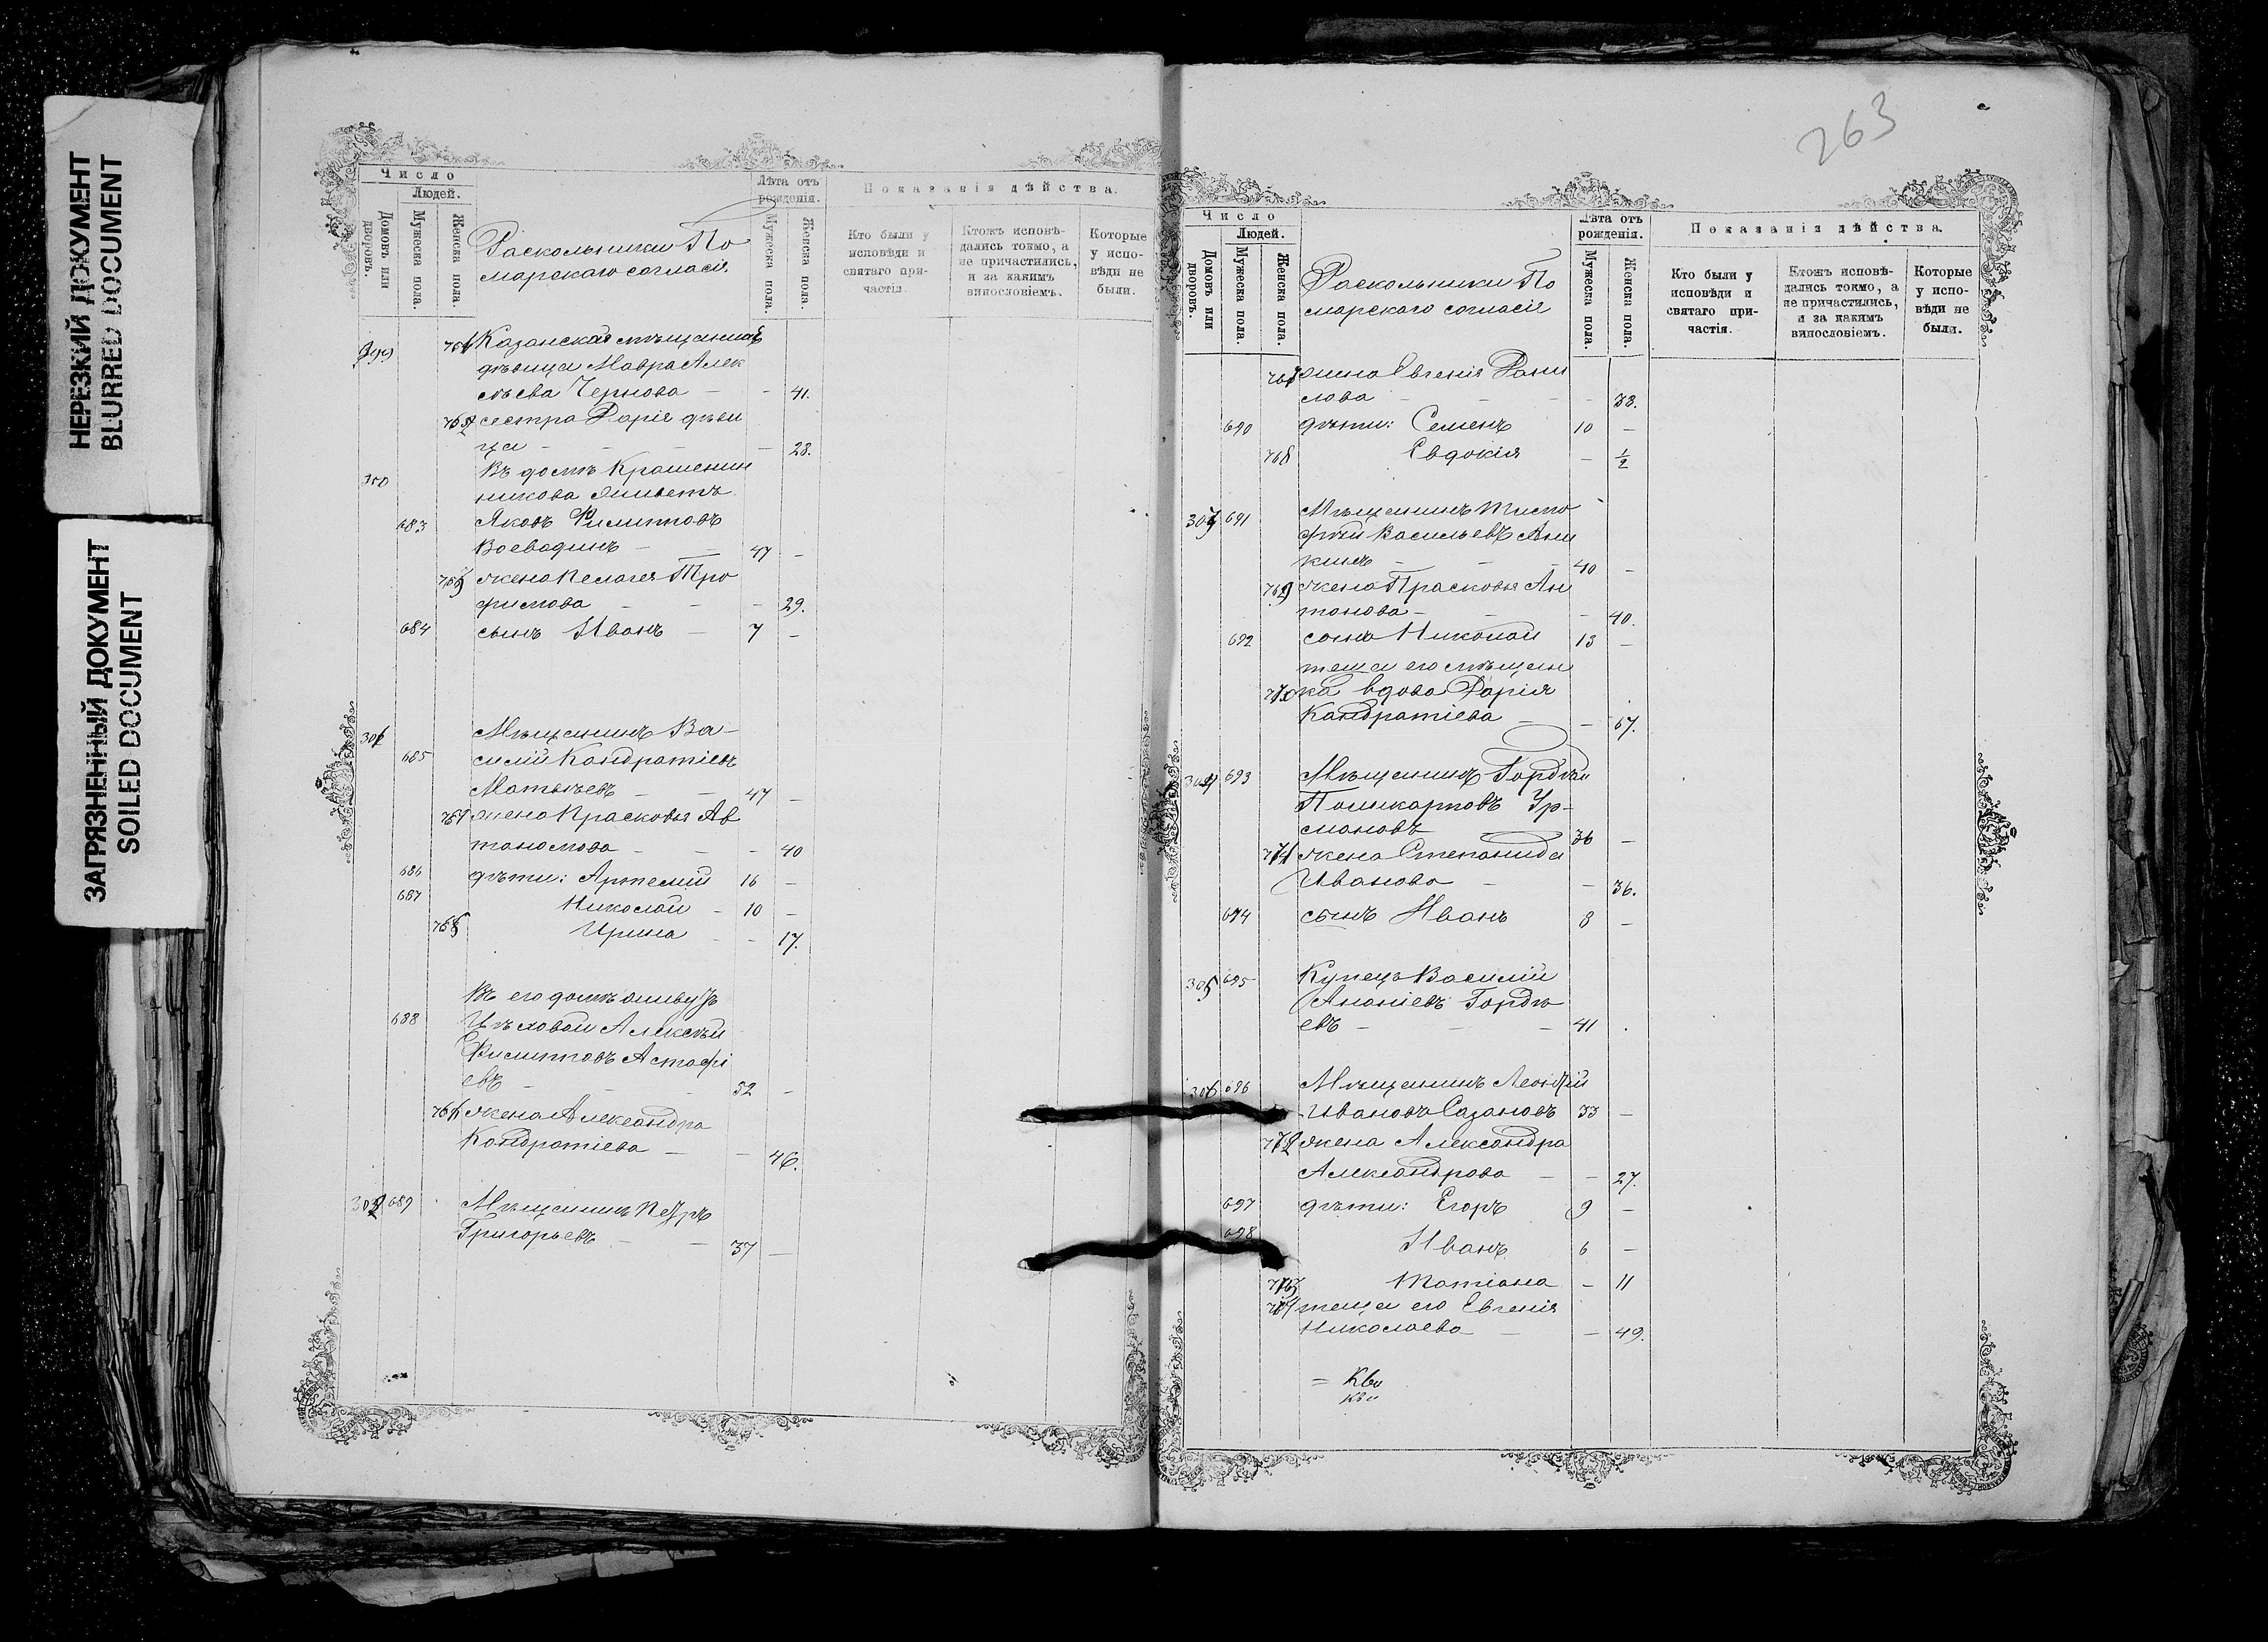 НЕРЕЗКИЙ ДОКУМЕНТ
BLURRED DOCUMENT
ЗАГРЯЗНЕННЫЙ ДОКУМЕНТ
SOILED DOCUMENT
Число
Людей.
Домовъ или дворовъ.
Мужеска пола.
Женска пола.
Раскольники По
марскаго согласія
Лѣта отъ рожденія.
Мужеска пола.
Женска пола.
Показанія дѣйства.
Кто были у исповѣди и святаго причастія.
Ктожъ исповѣдались токмо, а не причастились, и за какимъ винословіемъ.
Которые у исповѣди не были.
Казанская мѣщанка
дѣвица Мавра Алек
сѣева Чернова - - 41.
сестра Дарія дѣви
ца - - - - 28.
300 Въ домѣ Крашенин
никова живетъ
683 Яковъ Филипповъ
Воеводинъ - - 47 -
жена Пелагея Тро
фимова - - - 29.
684 сынъ Иванъ - 7 -
301 Мѣщанинъ Ва-
685 силій Кандратіевъ
Матвѣевъ - - 47 -
жена Прасковья Ав
тономова - - - 40
686 дѣти: Артемій 16 -
687 Николай - 10 -
Ирина - - 17.
Въ его домѣ живутъ
688 Цѣховой Алексѣй
Филипповъ Астафі
евъ - - 52 -
жена Александра
Кондратіева - - 46.
302 689 Мѣщанинъ Петръ
Григорьевъ - - 37 -
263
Число
Людей.
Домовъ или дворовъ.
Мужеска пола.
Женска пола.
Раскольники По
марскаго согласія
Лѣта отъ рожденія.
Мужеска пола.
Женска пола.
Показанія дѣйства.
Кто были у исповѣди и святаго причастія.
Ктожъ исповѣдались токмо, а не причастились, и за какимъ винословіемъ.
Которые у исповѣди не были.
жена Евгенія Дани
лова - - - - 38.
690 дѣти: Семенъ 10 -
768 Евдокія - 1/2
303 691 Мѣщанинъ Тимо
фѣй Васильевъ Ани
кинъ - - - 40 -
769 жена Прасковья Ан
тонова - - - 40.
692 сынъ Николай 13 -
теща его мѣщан
770 ка вдова Дарія
Кандратіева - - 67.
304 693 Мѣщанинъ Гордѣй
Поликарповъ Ур-
мановъ 36 -
771 жена Степанида
Иванова - - 36.
694 сынъ Иванъ 8 -
305 695 Купецъ Василій
Ананіевъ Гордѣ
евъ - - - 41 .
306 696 Мѣщанинъ Леонтій
Ивановъ Сазановъ 33 -
772 жена Александра
Александрова - - 27.
697 дѣти: Егоръ 9 -
698 Иванъ 6 -
773 Татіана - 11
774 теща его Евгенія
Николаева - - 49.